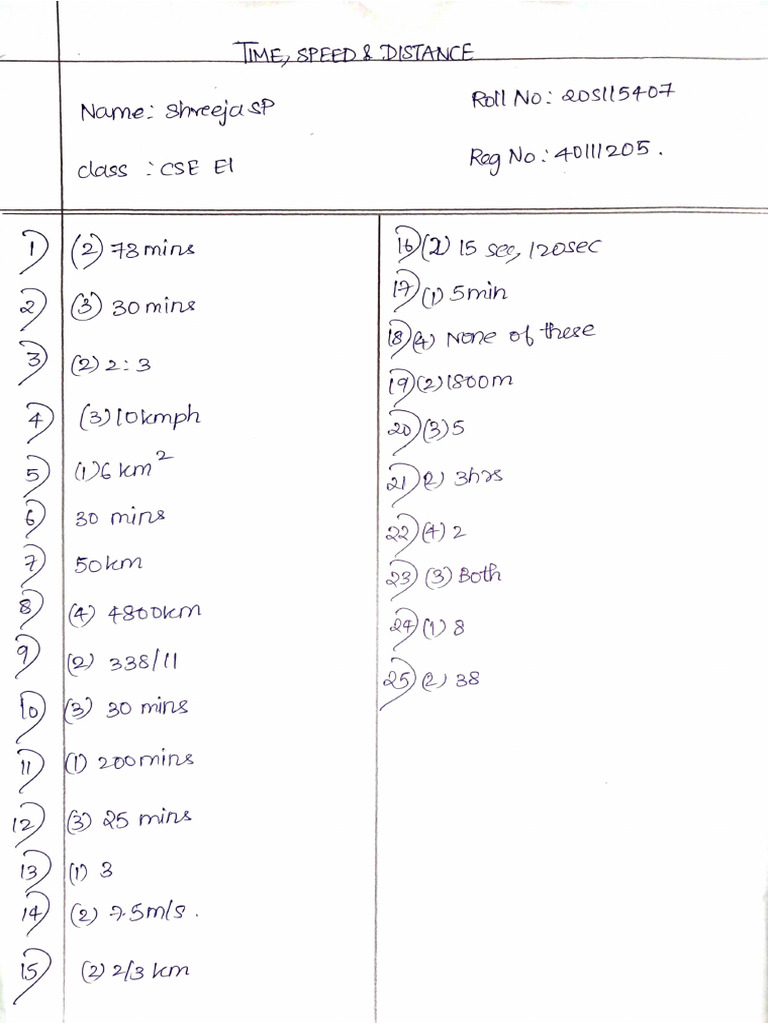 TIME, SPEED & DISTANCE
Name: Shreeja SP
Roll No: 20S115407
class : CSE E1
Reg No: 40111205.
1) (2) 78 mins
2) (3) 30 mins
3) (2) 2:3
4) (3) 10 kmph
5) (1) 6 km²
6) 30 mins
7) 50 km
8) (4) 4800km
9) (2) 338/11
10) (3) 30 mins
11) (1) 200 mins
12) (3) 25 mins
13) (1) 3
14) (2) 7.5m/s.
15) (2) 2/3 km
16) (2) 15 sec, 120sec
17) (1) 5min
18) (4) None of these
19) (2) 1800m
20) (3) 5
21) (2) 3hrs
22) (4) 2
23) (3) Both
24) (1) 8
25) (2) 38